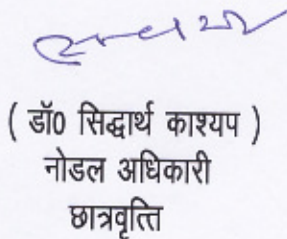 ( डॉ0 सिद्धार्थ काश्यप )
नोडल अधिकारी
छात्रवृत्ति